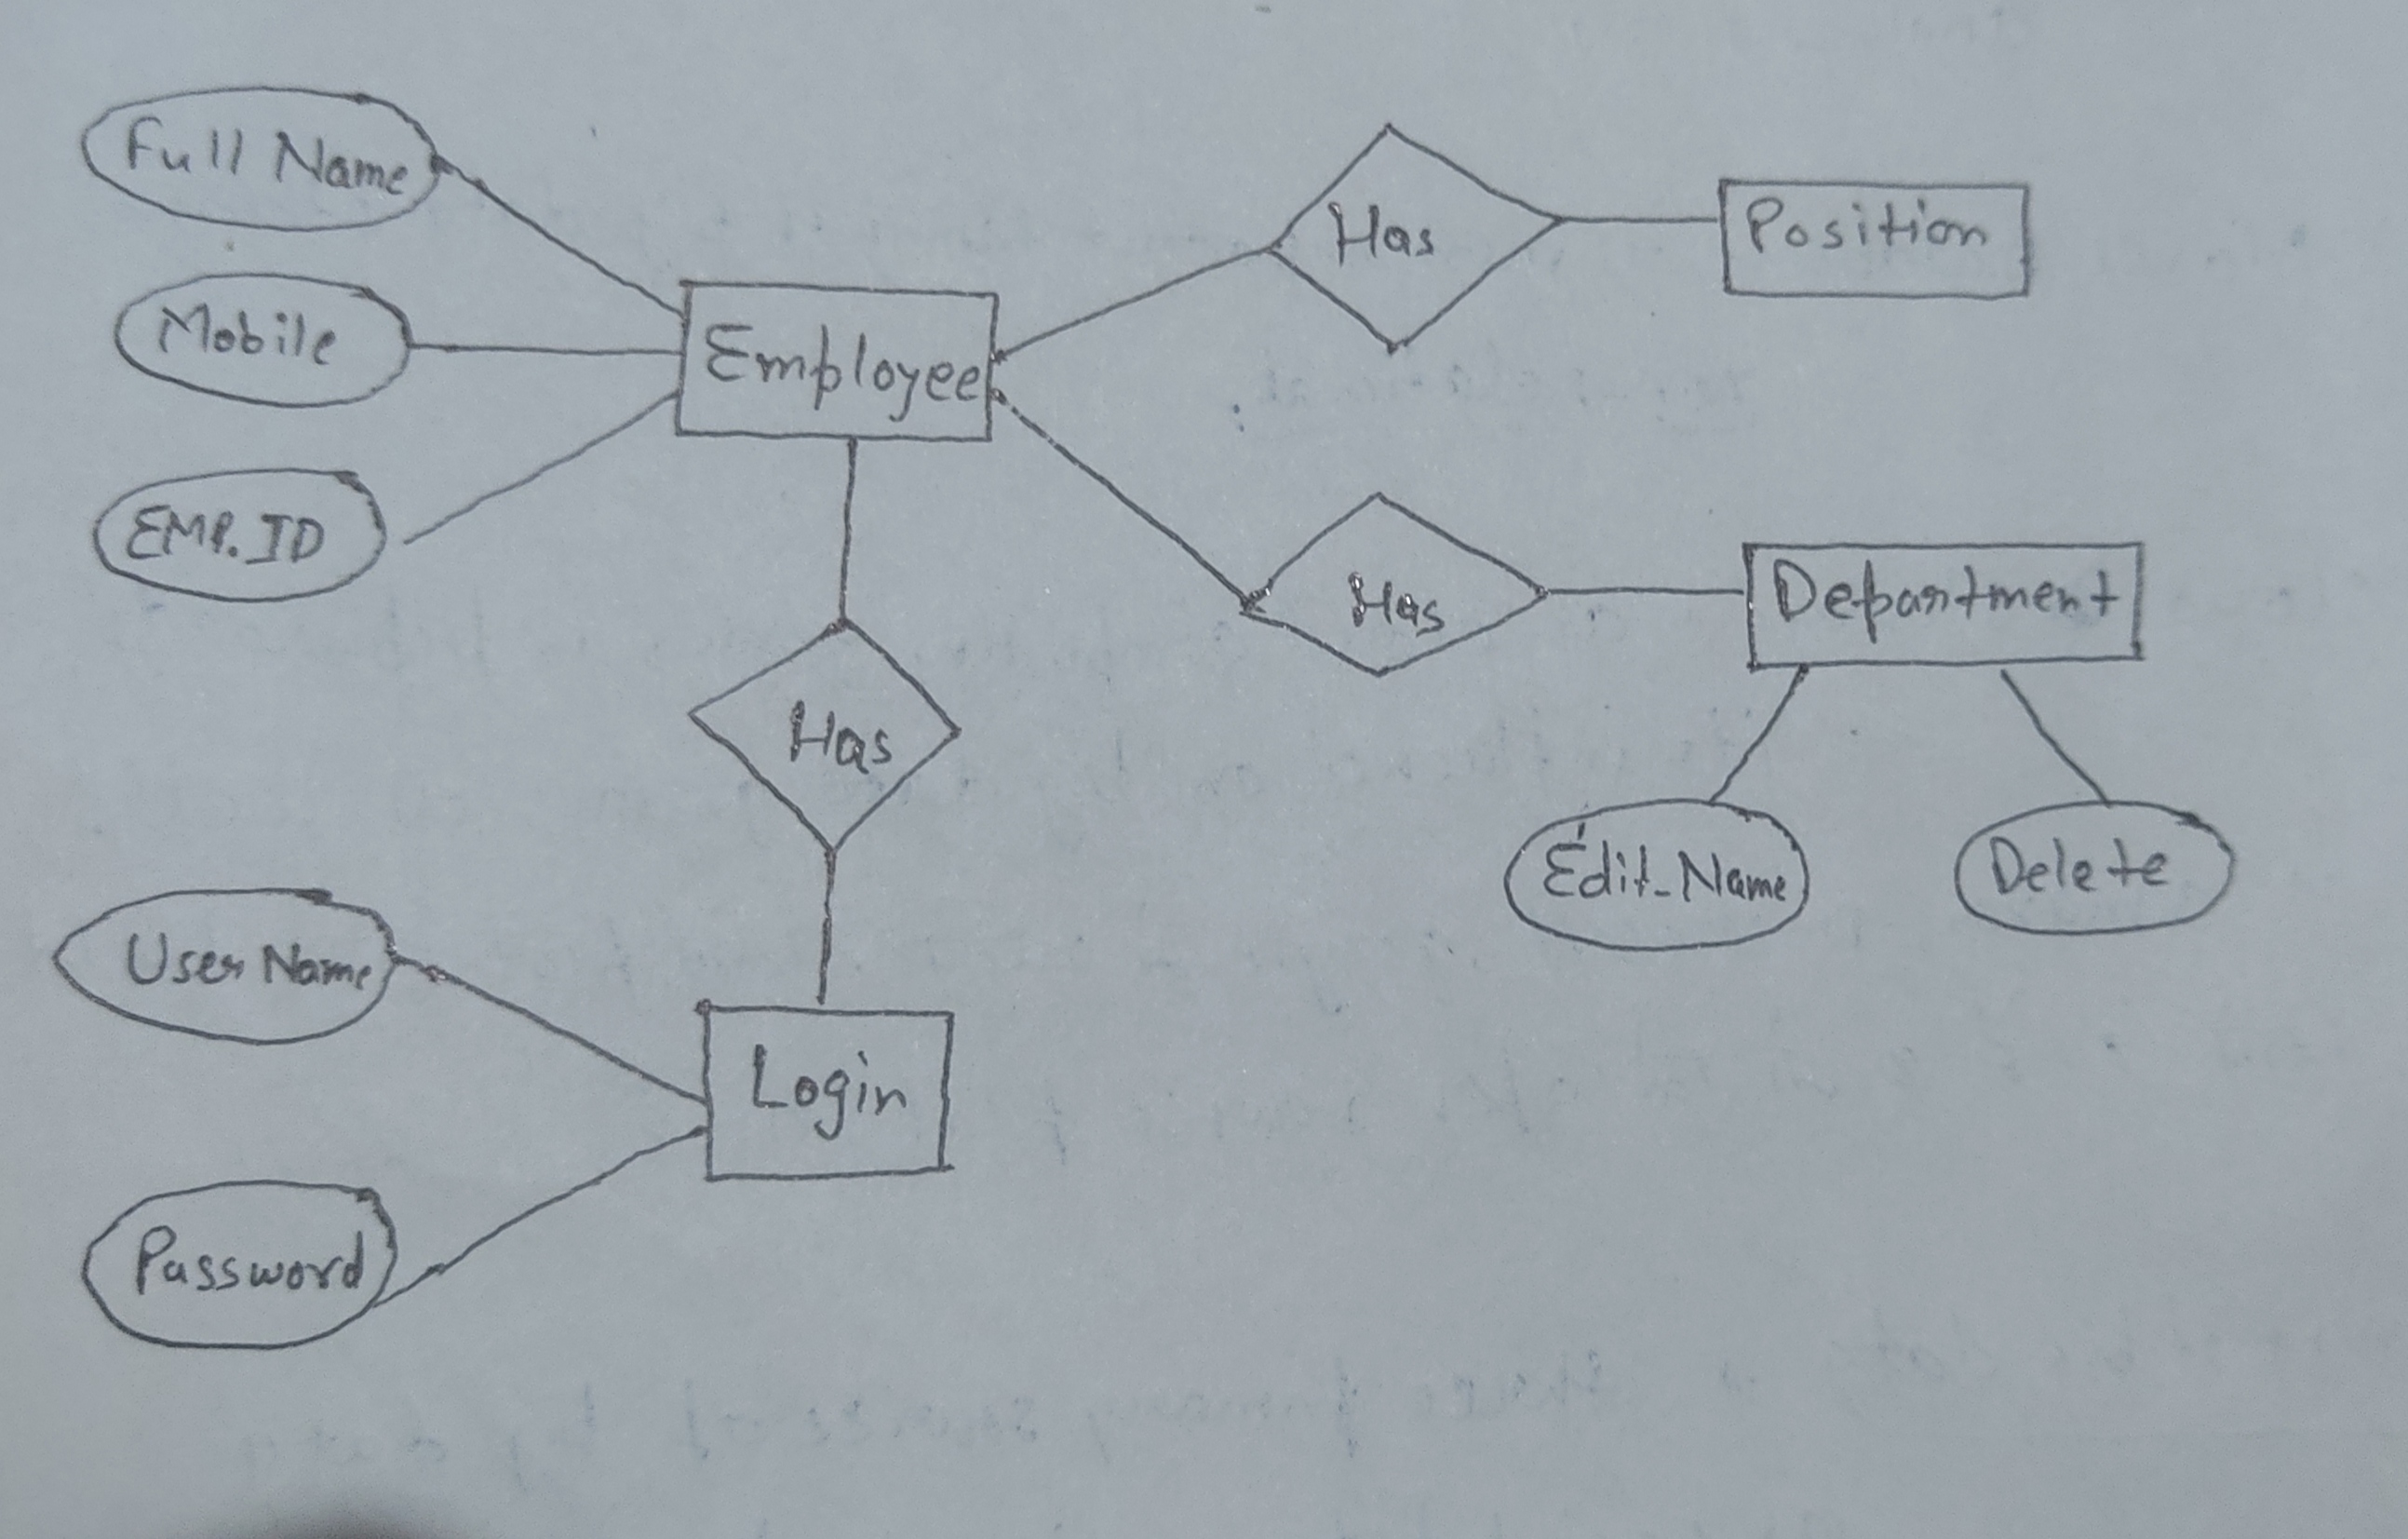 Full Name
Mobile
EMP.ID
Employee
Has
Position
Has
Department
Edit_Name
Delete
Has
User Name
Password
Login